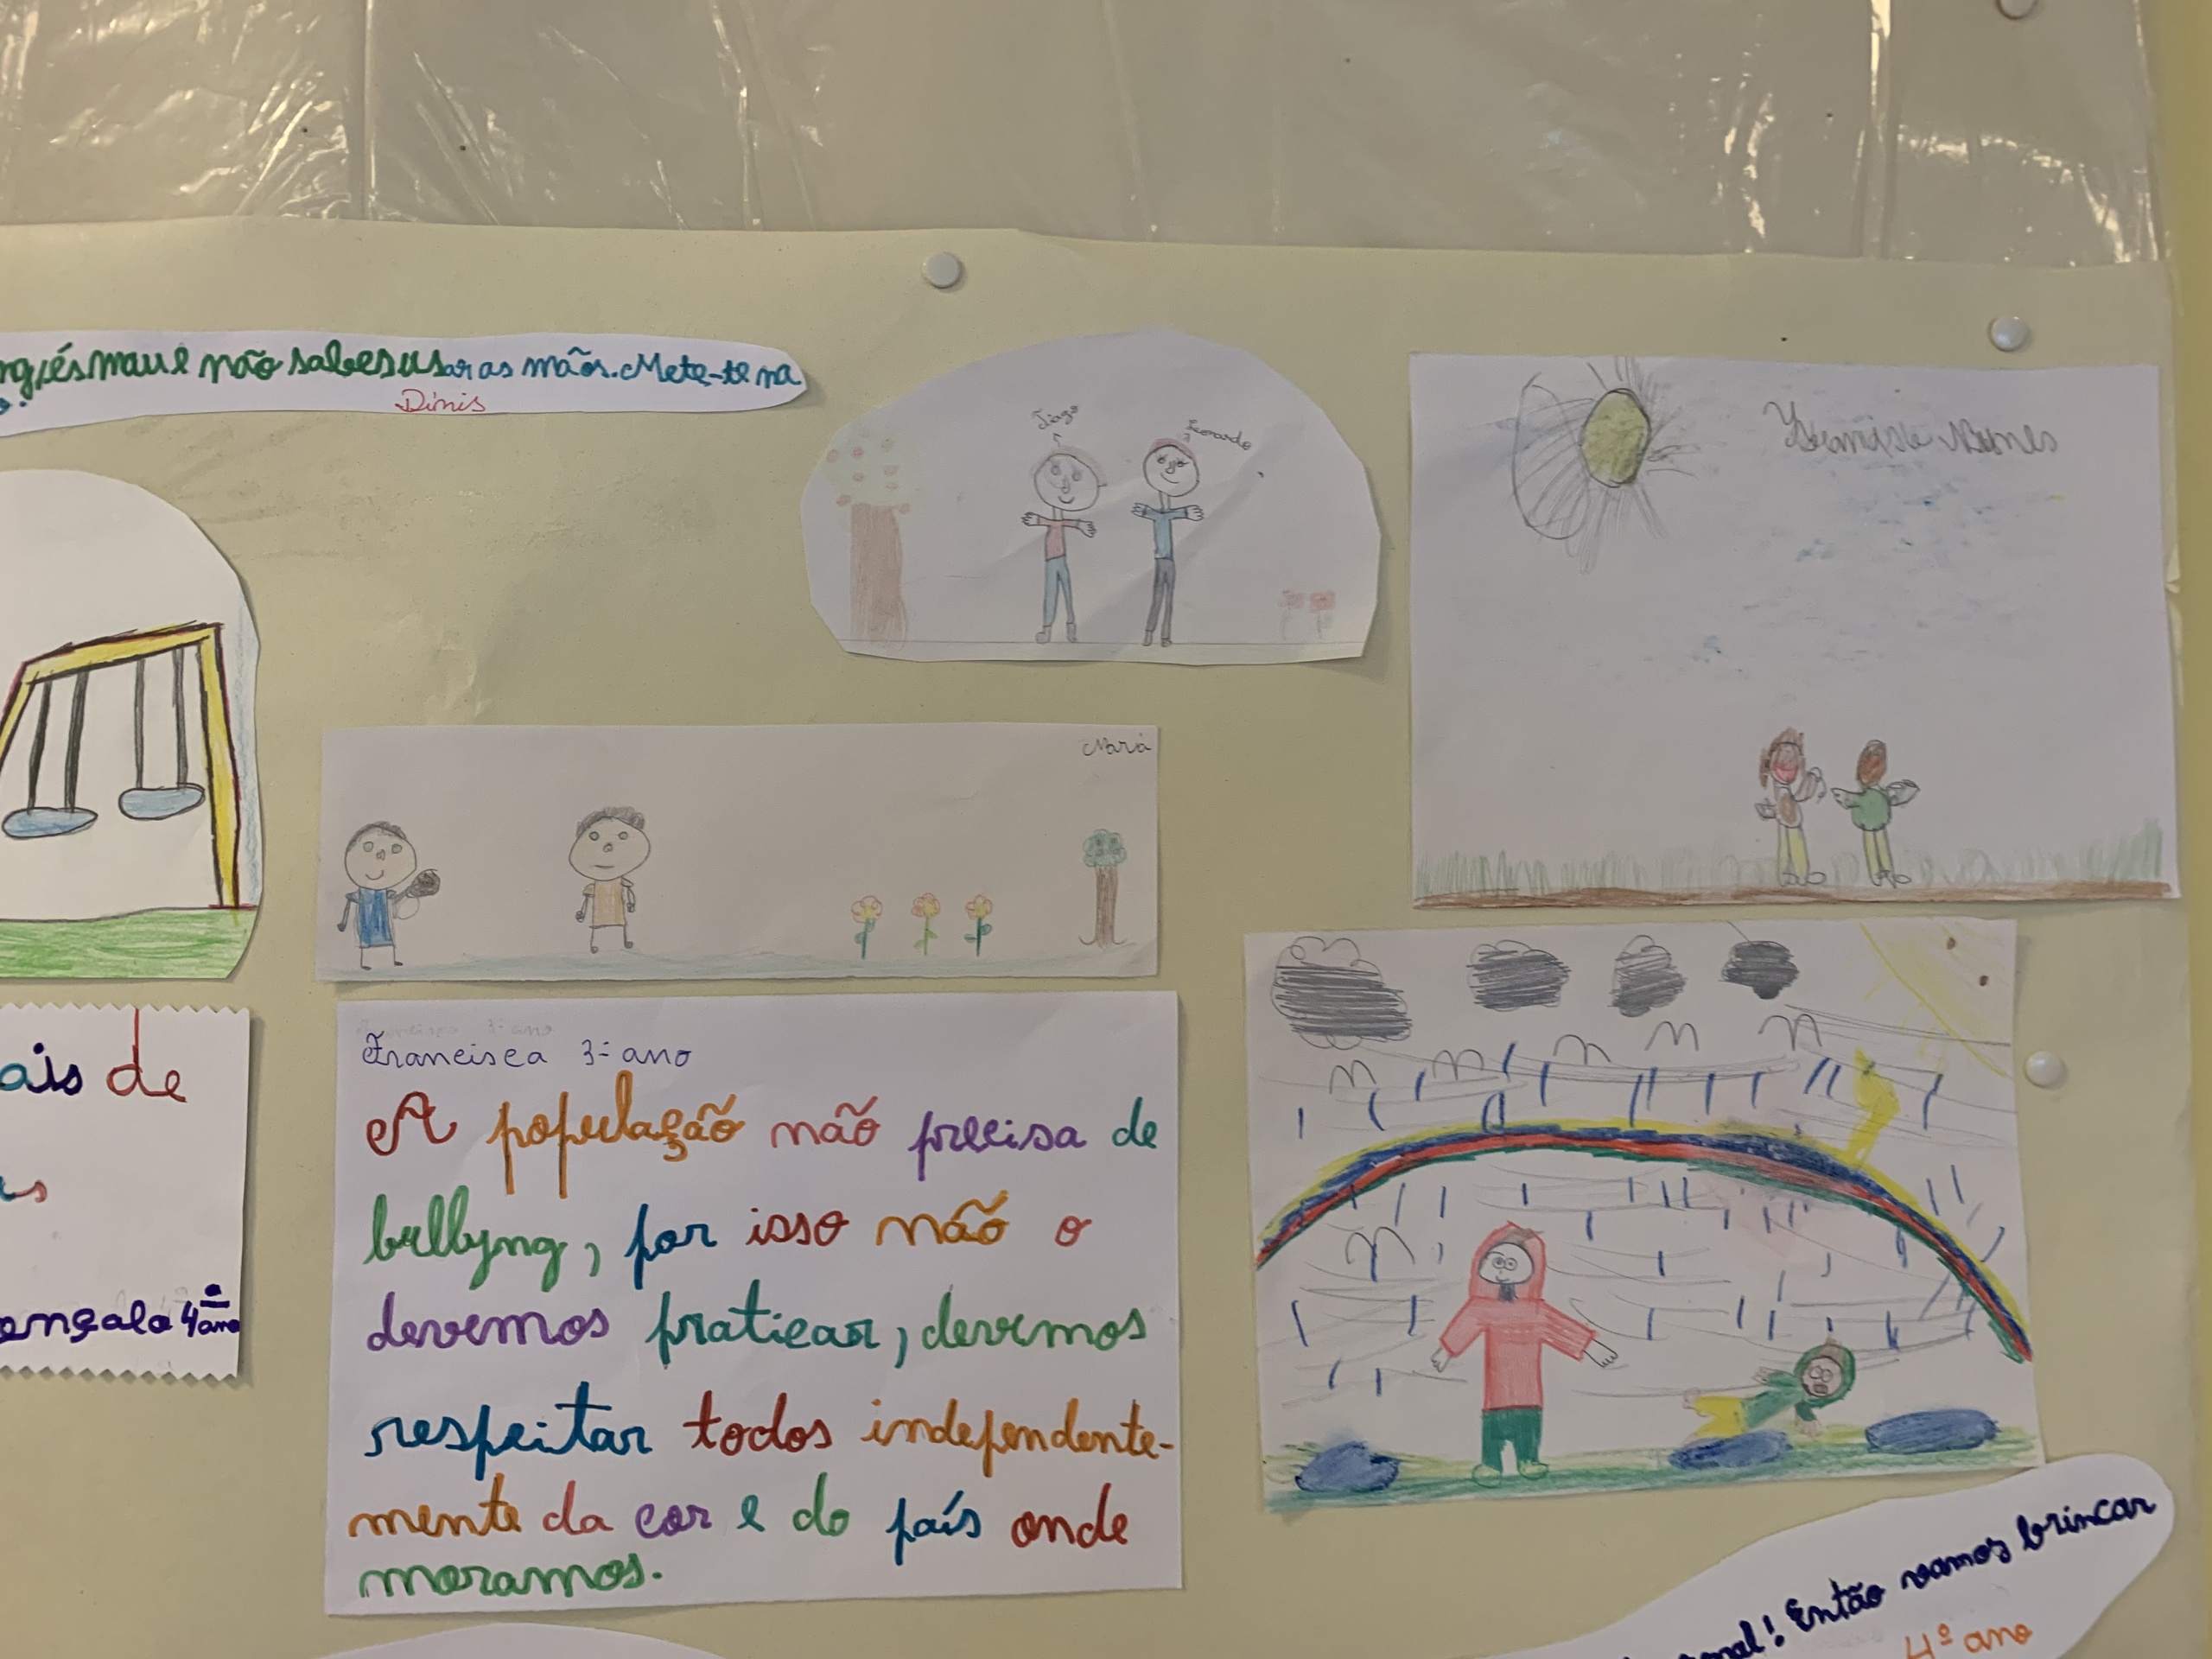 és mau e não sabes usar as mãos. Mete-te na
Dinis
Tiago
Leonardo
Nunes
Mará
Francisca 3º ano
Francisca 3º ano
A população não precisa de
bullyng, por isso não o
devemos praticar, devemos
respeitar todos independente-
mente da cor e do país onde
moramos.
ais de
4º
ano
Então vamos brincar
4º ano